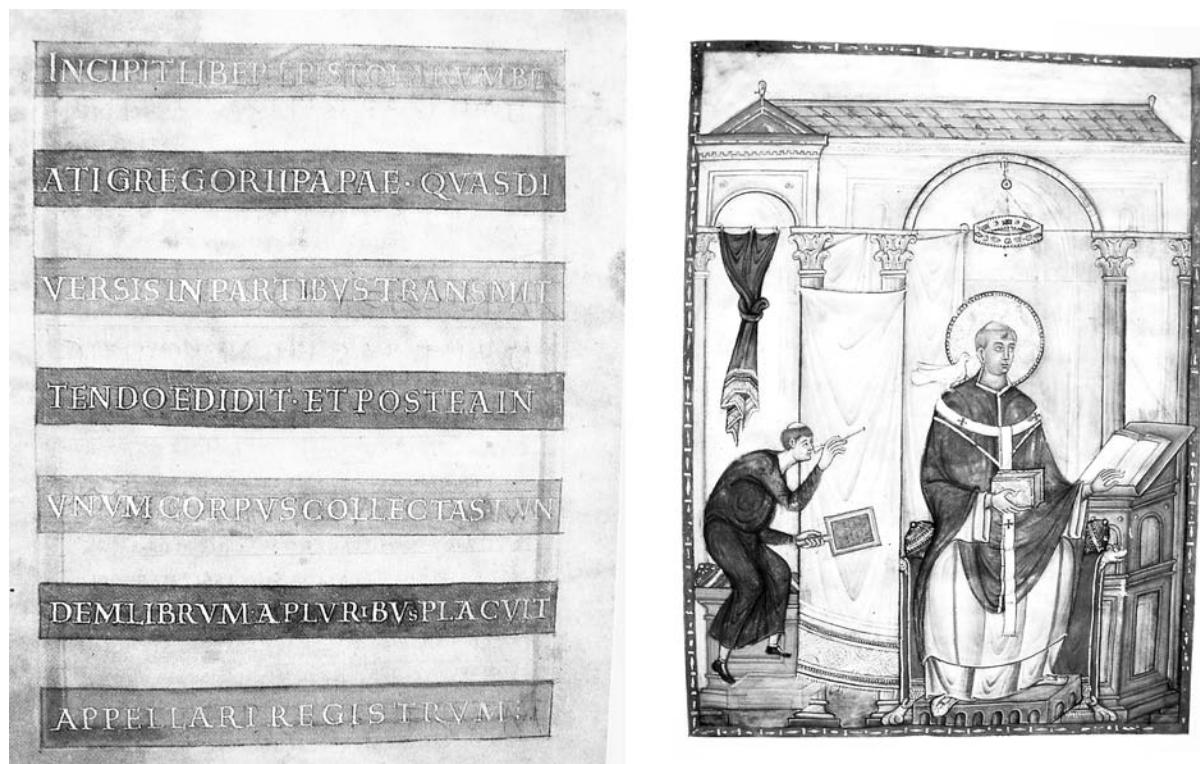 INCIPIT LIBER EPISTOLARVM BE
ATI GREGORII PAPAE · QVAS DI
VERSIS IN PARTIBVS TRANSMIT
TENDO EDIDIT · ET POSTEA IN
VNVM CORPVS COLLECTAS TVN
DEM LIBRVM A PLVRIBVS PLACVIT
APPELLARI REGISTRVM: